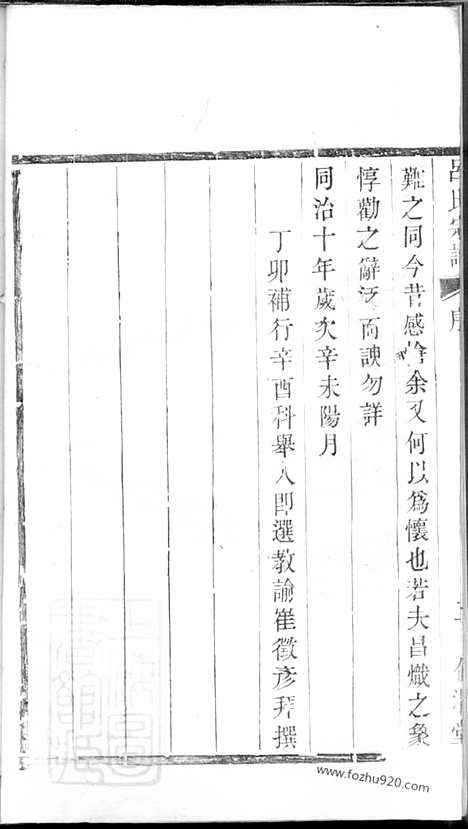 呂氏宗譜 序
難之同今昔感 余又何以為懷也若夫昌熾之象
惇勸之辭泛而諛勿詳
同治十年歲次辛未陽月
丁卯補行辛酉科舉人即選教諭崔徵彥拜撰
www.fozhu920.com